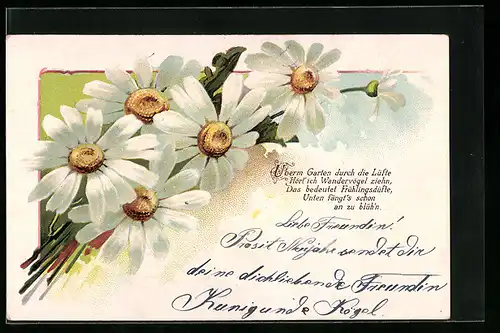 Überm Garten durch die Lüfte
Hört ich Wandervögel ziehn,
Das bedeutet Frühlingsdüfte,
Unten fängt's schon
an zu blüh'n.
Liebe Freundin!
Prosit Neujahr sendet dir
deine dichliebende Freundin
Kunigunde Kögel.